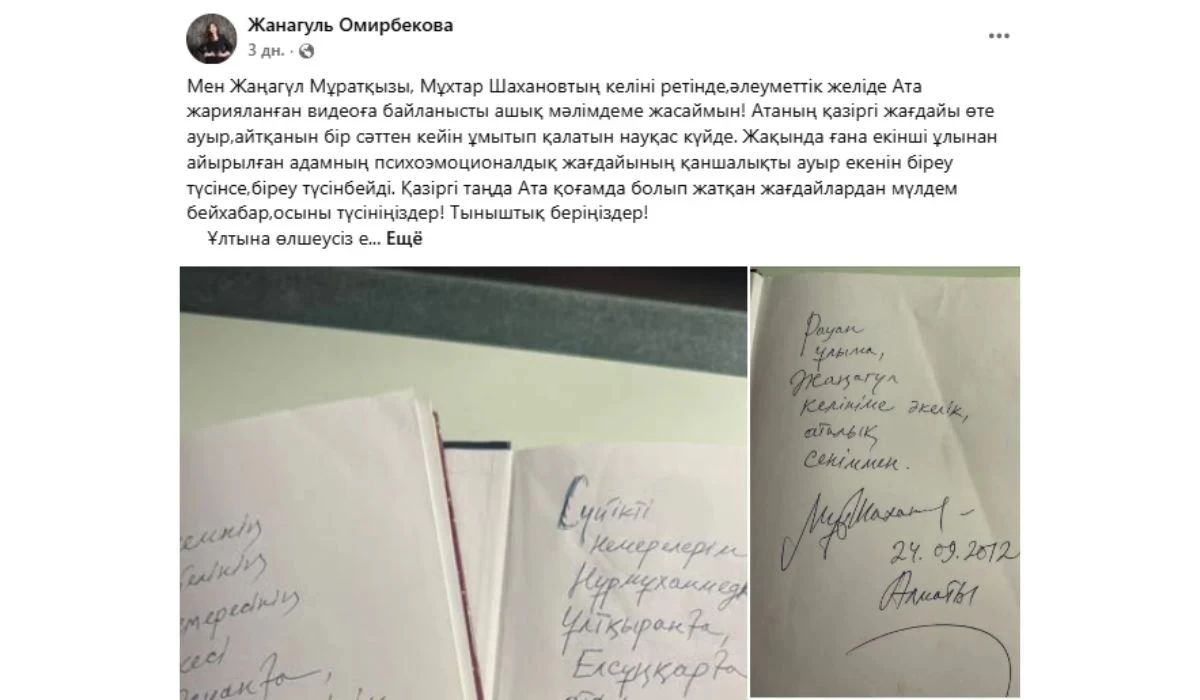 Жанагуль Омирбекова
3 дн. ·
Мен Жаңагүл Мұратқызы, Мұхтар Шахановтың келіні ретінде,әлеуметтік желіде Ата
жарияланған видеоға байланысты ашық мәлімдеме жасаймын! Атаның қазіргі жағдайы өте
ауыр,айтқанын бір сәттен кейін ұмытып қалатын науқас күйде. Жақында ғана екінші ұлынан
айырылған адамның психоэмоционалдық жағдайының қаншалықты ауыр екенін біреу
түсінсе,біреу түсінбейді. Қазіргі таңда Ата қоғамда болып жатқан жағдайлардан мүлдем
бейхабар,осыны түсініңіздер! Тыныштық беріңіздер!
Ұлтына өлшеусіз е... Ещё
Сүйікті
немерелерім
Нұрмұхаммед
Ұлтқыранға,
Елсұңқарға
Рауан
ұлыма,
Жаңагүл
келініме әкелік,
аталық
сеніммен.
24.09.2012
Алматы